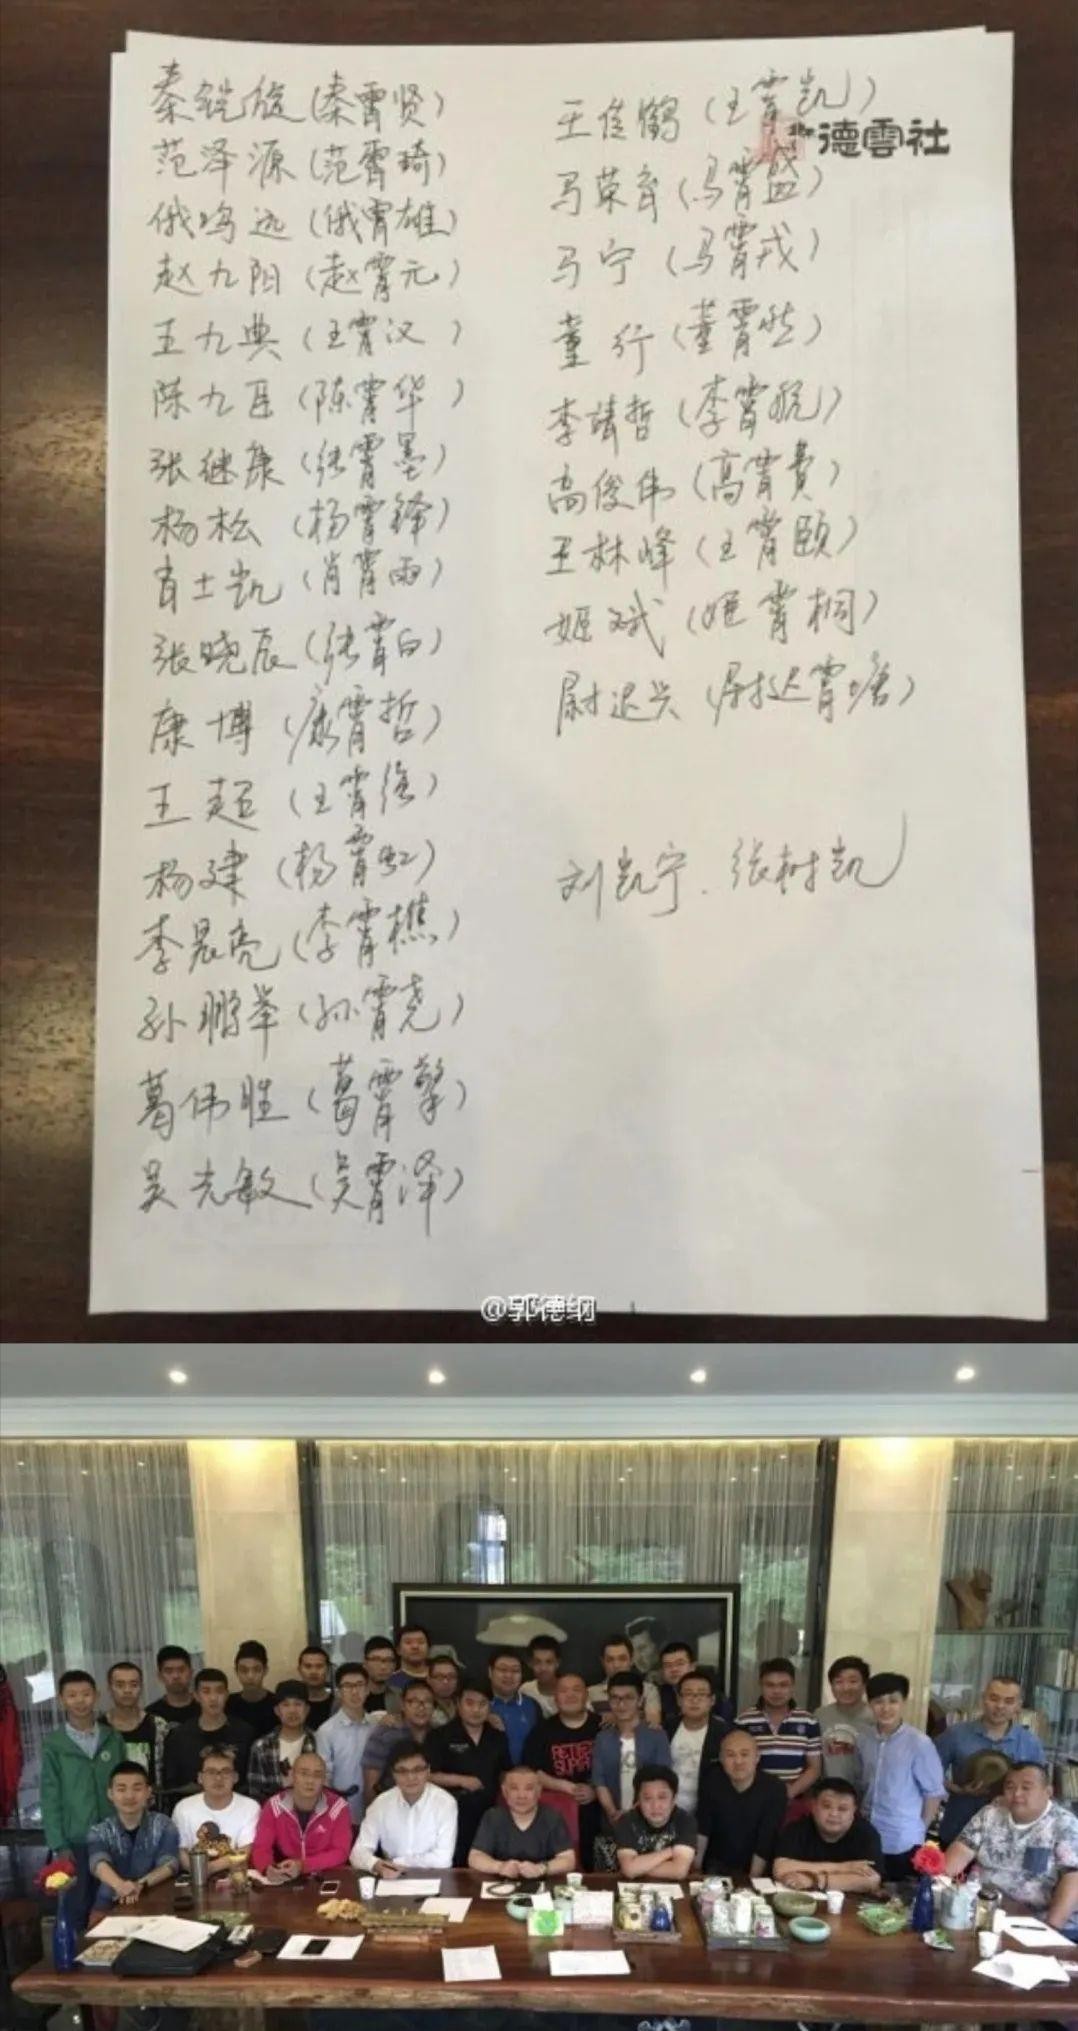 秦凯旋(秦霄贤)
范泽源(范霄琦)
俄鸣远(俄霄雄)
赵九阳(赵霄元)
王九典(王霄汉)
陈九臣(陈霄华)
张继康(张霄墨)
杨松(杨霄锋)
肖士凯(肖霄雨)
张晓辰(张霄白)
康博(康霄哲)
王超(王霄强)
杨建(杨霄虹)
李晨亮(李霄樵)
孙鹏举(孙霄尧)
葛伟胜(葛霄擎)
吴光敏(吴霄泽)
王佳鹤(王霄凯)
德雲社
马荣弃(马霄盛)
马宁(马霄戎)
董行(董霄然)
李靖哲(李霄航)
高俊伟(高霄贵)
王林峰(王霄颐)
姬斌(姬霄桐)
尉迟兴(尉迟霄塘)
刘凯宁、张树凯
@郭德纲